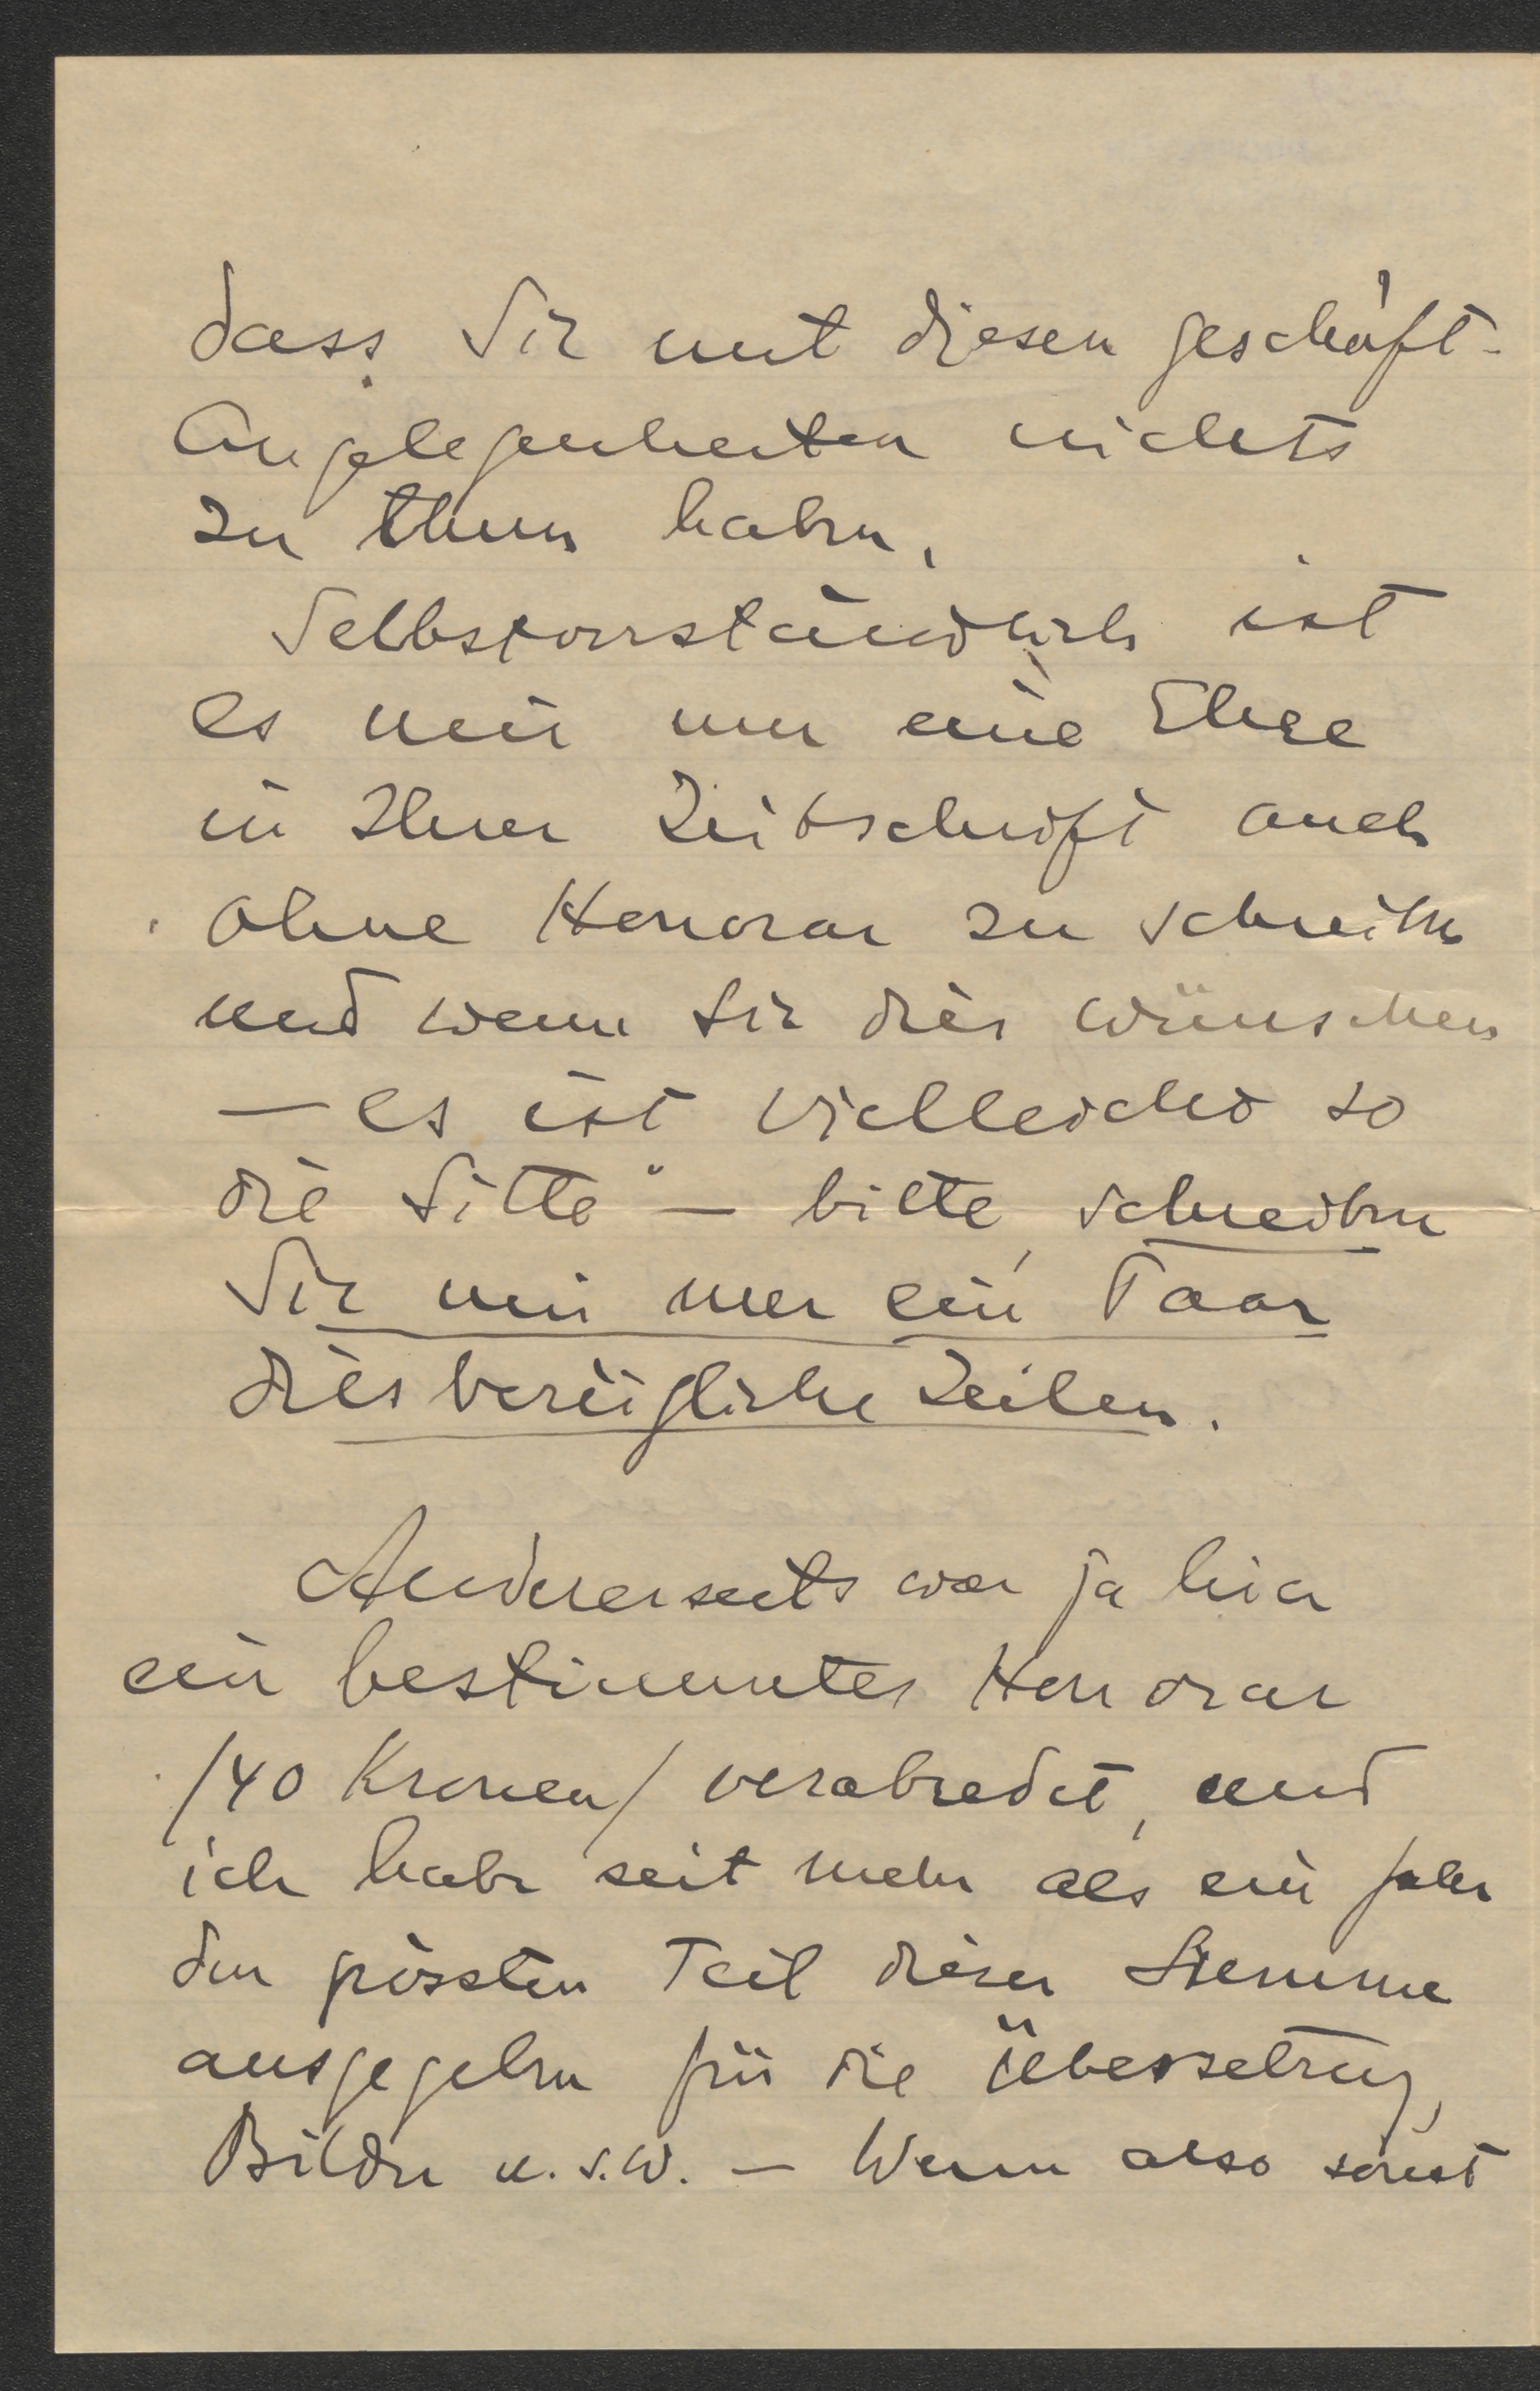 dass Sie mit diesen geschäft-
Angelegenheiten nichts
zu thun haben.
Selbstverständlich ist
es mir nur eine Ehre
in Ihrer Zeitschrift auch
ohne Honorar zu schreiben
und wenn Sie dies wünschen
— es ist vielleicht so
die Sitte — bitte, schreiben
Sie mir nur ein Paar
diesbezügliche Zeilen.
Andererseits war ja hier
ein bestimmtes Honorar
/40 Kronen/ verabredet, und
ich habe seit mehr als ein Jahr
den grössten Teil dieser Summe
ausgegeben für die Übersetzung,
Bilder u.s.w. — Wenn also sonst